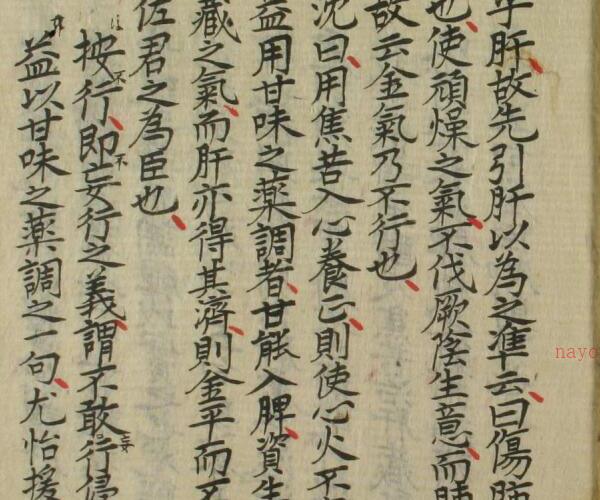 乎肝故先引肝以為之準云曰傷肝
也使頑燥之氣不伐厥陰生意而肺
故云金氣乃不行也
沈曰用焦苦入心養正則使心火不
益用甘味之薬調者甘能入脾資生
藏之氣而肝亦得其濟則金平而不
佐君之為臣也
按行即妄行之義謂不敢行侵
益以甘味之薬調之一句尤怡援
nayo